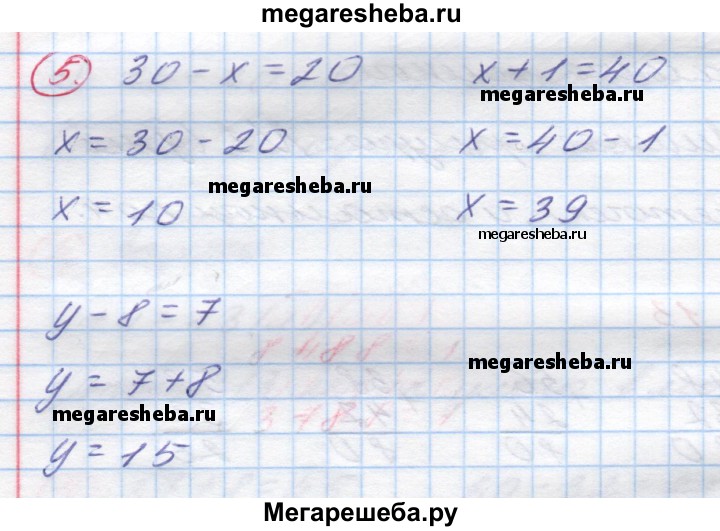 megaresheba.ru
5. 30 - x = 20 x + 1 = 40
megaresheba.ru
x = 30 - 20 x = 40 - 1
megaresheba.ru
x = 10 x = 39
megaresheba.ru
y - 8 = 7
megaresheba.ru
y = 7 + 8
megaresheba.ru
y = 15
Мегарешеба.ру